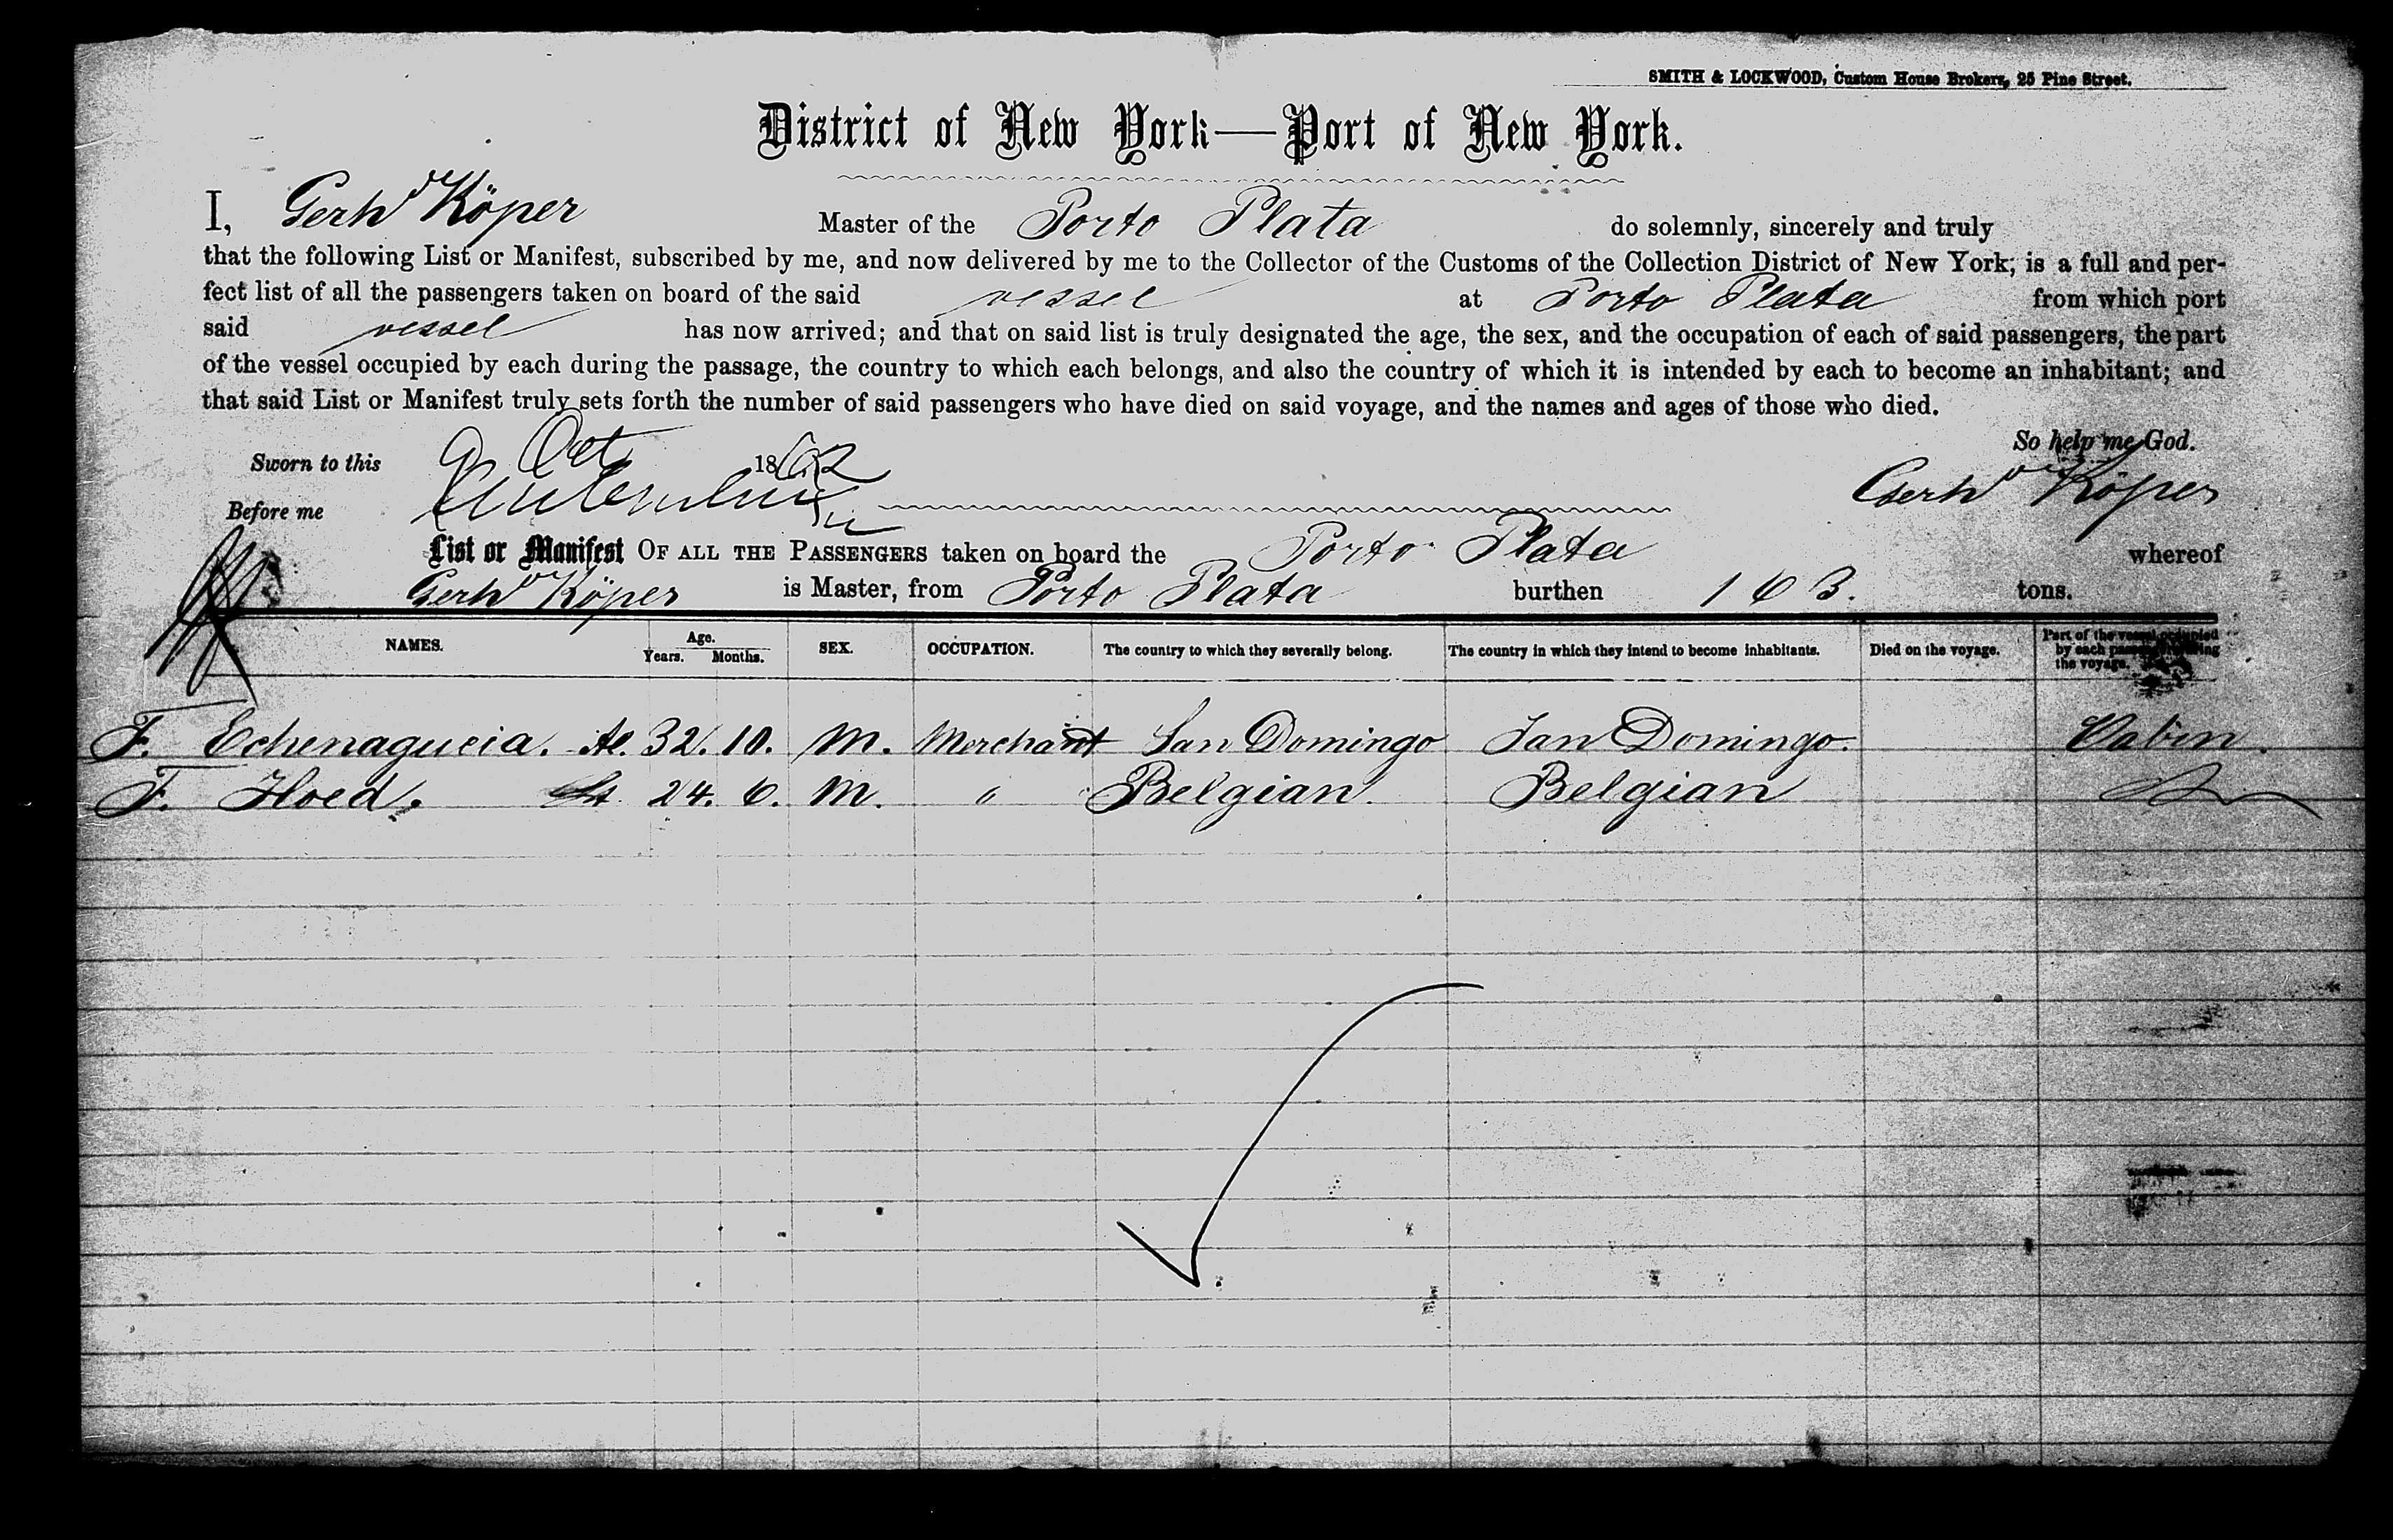 SMITH & LOCKWOOD, Custom House Brokers, 25 Pine Street.
District of New York—Port of New York.
I, Gerhd Köper Master of the Porto Plata do solemnly, sincerely and truly
that the following List or Manifest, subscribed by me, and now delivered by me to the Collector of the Customs of the Collection District of New York; is a full and per-
fect list of all the passengers taken on board of the said vessel at Porto Plata from which port
said vessel has now arrived; and that on said list is truly designated the age, the sex, and the occupation of each of said passengers, the part
of the vessel occupied by each during the passage, the country to which each belongs, and also the country of which it is intended by each to become an inhabitant; and
that said List or Manifest truly sets forth the number of said passengers who have died on said voyage, and the names and ages of those who died.
So help me God.
Sworn to this 9 Oct 1862
Before me Gerhd Köper
List or Manifest OF ALL THE PASSENGERS taken on board the Porto Plata whereof
Gerhd Köper is Master, from Porto Plata burthen 163. tons.
NAMES. Age. Years. Months. SEX. OCCUPATION. The country to which they severally belong. The country in which they intend to become inhabitants. Died on the voyage. Part of the vessel occupied by each passenger during the voyage.
F. Echenagucia. At. 32. 10. M. Merchant San Domingo San Domingo. Cabin.
F. Hoed. 24. 6. M. " Belgian. Belgian